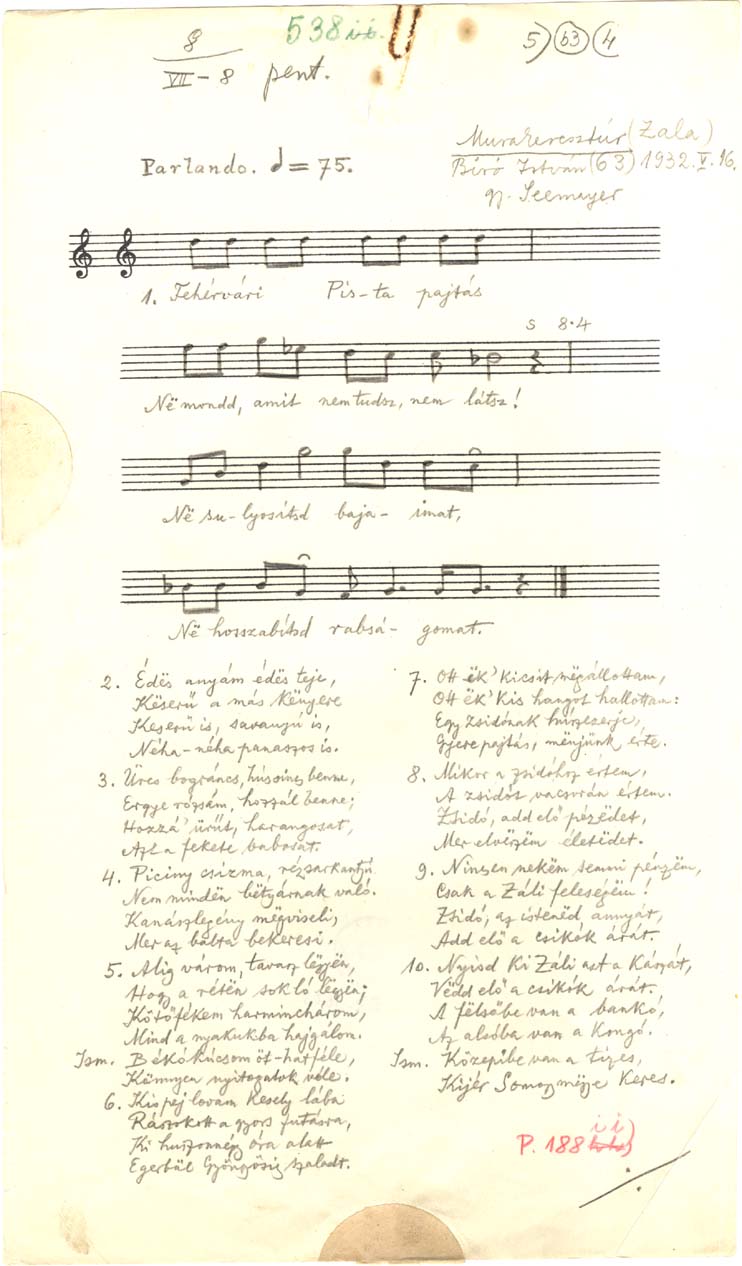 8
VII-8 pent.
538 ii.
5) b3 4
Murakeresztúr (Zala)
Bíró István (63) 1932. V. 16.
gy. Seemayer
Parlando. = 75.
1. Fehérvári Pis-ta pajtás
s 8.4
Në mondd, amit nem tudsz, nem látsz!
Në su-lyosítsd baja- imat,
Në hosszabítsd rabsá- gomat.
2. Édës anyám édës teje,
Këserű a más kënyere
Keserű is, savanyú is,
Néha-néha panaszos is.
3. Üres bográncs, hús sincs benne,
Ergye rózsám, hozzál benne;
Hozzá' ürüt, harangosat,
Azt a fekete babosat.
4. Piciny csizma, rézsarkantyú
Nem mindën bëtyárnak való.
Kanászlegény mëgviseli,
Mer az bálba bekeresi.
5. Alig várom, tavasz lëgyën,
Hogy a rétën sok ló lëgyën;
Kötőfékem harminchárom,
Mind a nyakukba hajgálom.
Ism. Békókúcsom öt-hatféle,
Könnyen nyitogatok vele.
6. Kis pej lovam kesely lába
Rászokott a gyors futásra,
Ki huszonnégy óra alatt
Egerbül Gyöngyösig szaladt.
7. Ott ëk' kicsit mëgállottam,
Ott ëk' kis hangot hallottam:
Egy zsidónak
Gyere pajtás, mënjünk érte.
8. Mikor a zsidóhoz értem,
A zsidót vacsorán értem.
Zsidó, add elő pézëdet,
Mer elvëszëm életëdet.
9. Ninsen nekëm semmi pénzëm,
Csak a Záli feleségëm!
Zsidó, az istenëd annyát,
Add elő a csikók árát.
10. Nyisd ki Záli azt a kászát,
Vëdd elő a csikók árát.
A fëlsőbe van a bankó,
Az alsóba van a kongó.
Ism. Közepibe van a tizes,
Kijér Somogy mëgye keres.
P. 188 ii)